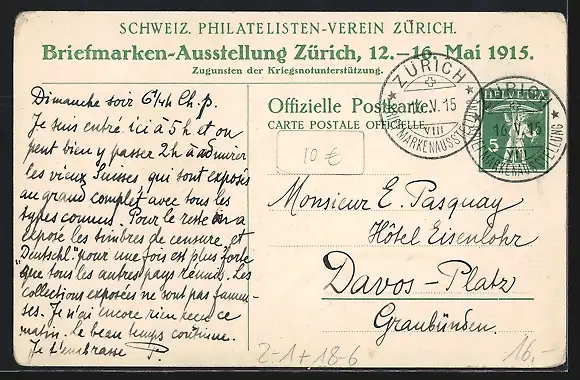 SCHWEIZ. PHILATELISTEN-VEREIN ZÜRICH.
Briefmarken-Ausstellung Zürich, 12.–16. Mai 1915.
Zugunsten der Kriegsnotunterstützung.
Dimanche soir 6 1/4 h
Je suis entré ici à 5 h et on
peut bien y passer 2 h à admirer
les vieux Suisses qui sont exposés
au grand complet avec tous les
types connus. Pour le reste on a
exposé les timbres de censure, et
"Deutschl." pour une fois est plus forte
que tous les autres pays réunis. Les
collections exposées ne sont pas fameu-
ses. Je n'ai encore rien reçu ce
matin. Le beau temps continue.
Je t'embrasse P.
Offizielle Postkarte
CARTE POSTALE OFFICIELLE
10 €
ZÜRICH
16. V. 15
VIII
BRIEFMARKENAUSSTELLUNG
HELVETIA
5
ZÜRICH
16. V. 15
VIII
BRIEFMARKENAUSSTELLUNG
Monsieur E. Pasquay
Hôtel Eisenlohr
Davos-Platz
Graubünden.
2-1+18-6
16.-